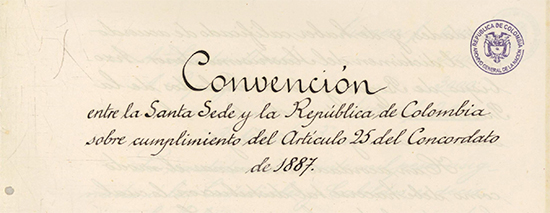 Convención
entre la Santa Sede y la República de Colombia
sobre cumplimiento del Artículo 25 del Concordato
de 1887.
REPUBLICA DE COLOMBIA
ARCHIVO GENERAL DE LA NACION